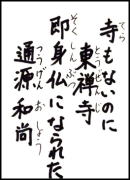 寺もないのに
東禅寺
即身仏になられた
通源和尚
てら
とうぜんじ
そくしんぶつ
つうげんおしょう